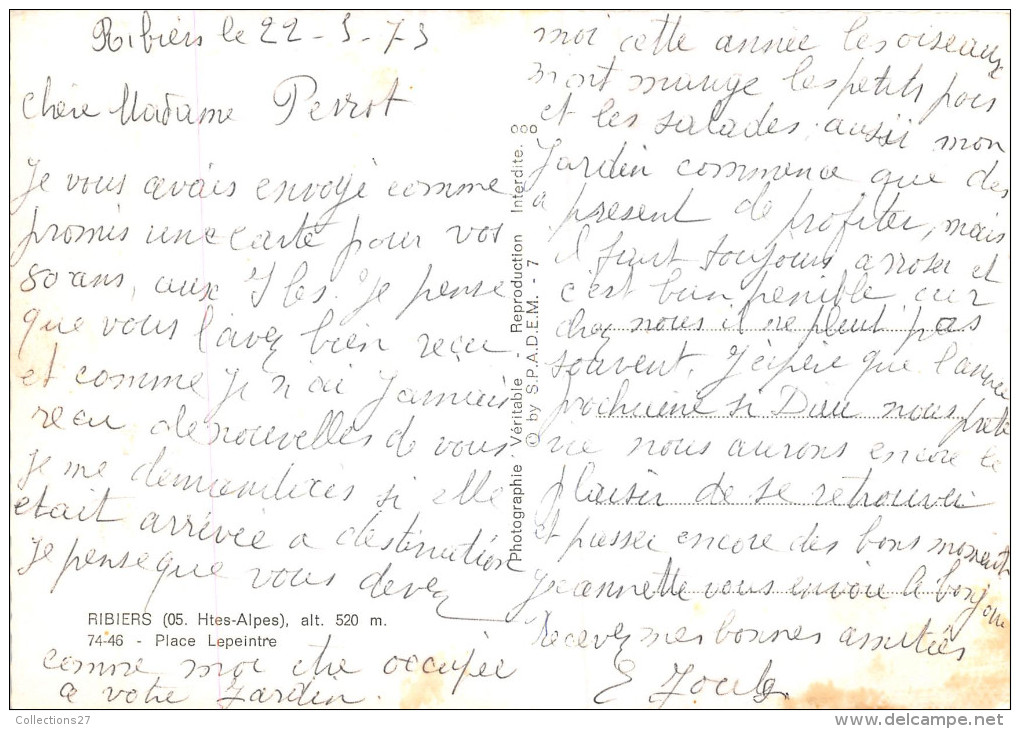 Ribiers le 22-5-73
chère Madame Perrot
Je vous avais envoyé comme
promis une carte pour vos
80 ans, aux Iles. Je pense
que vous l'avez bien reçu
et comme Je n'ai Jamais
recu de nouvelles de vous
Je me demandais si elle
etait arrivée a destination
Je pense que vous devez
RIBIERS (05. Htes-Alpes), alt. 520 m.
74-46 - Place Lepeintre
comme moi etre occupée
a votre Jardin.
Photographie Véritable Reproduction Interdite.
© by S.P.A.D.E.M. - 7
moi cette année les oiseaux
m'ont mangé les petits pois
et les salades. aussi mon
Jardin commence que des
a present de profiter, mais
il faut toujours arroser et
c'est bien penible car
chez nous il ne pleut pas
souvent. J'espère que l'année
prochaine si Dieu nous prete
vie nous aurons encore le
plaisir de se retrouver
et passer encore des bons moments
Jeannette vous envoie le bonjour
Recevez mes bonnes amitiés
E
Collections27
www.delcampe.net